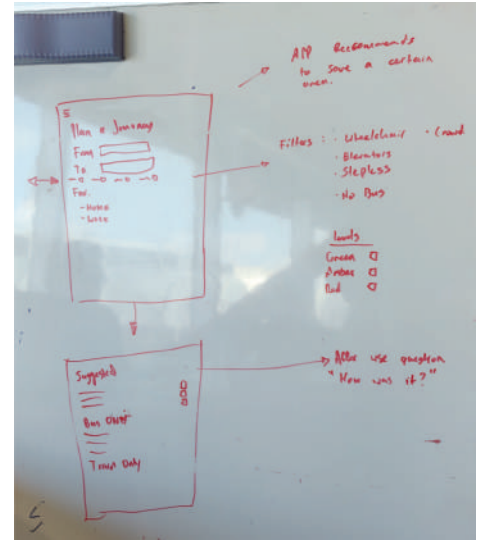 APP Recommends
to save a certain
area.
Plan a Journey
From
To
Fav.
- Home
- Work
Filters : · Wheelchair · Crowd
· Elevators
· Stepless
· No Bus
Levels
Green
Amber
Red
Suggested
Bus Only
Train Only
After use question
"How was it?"